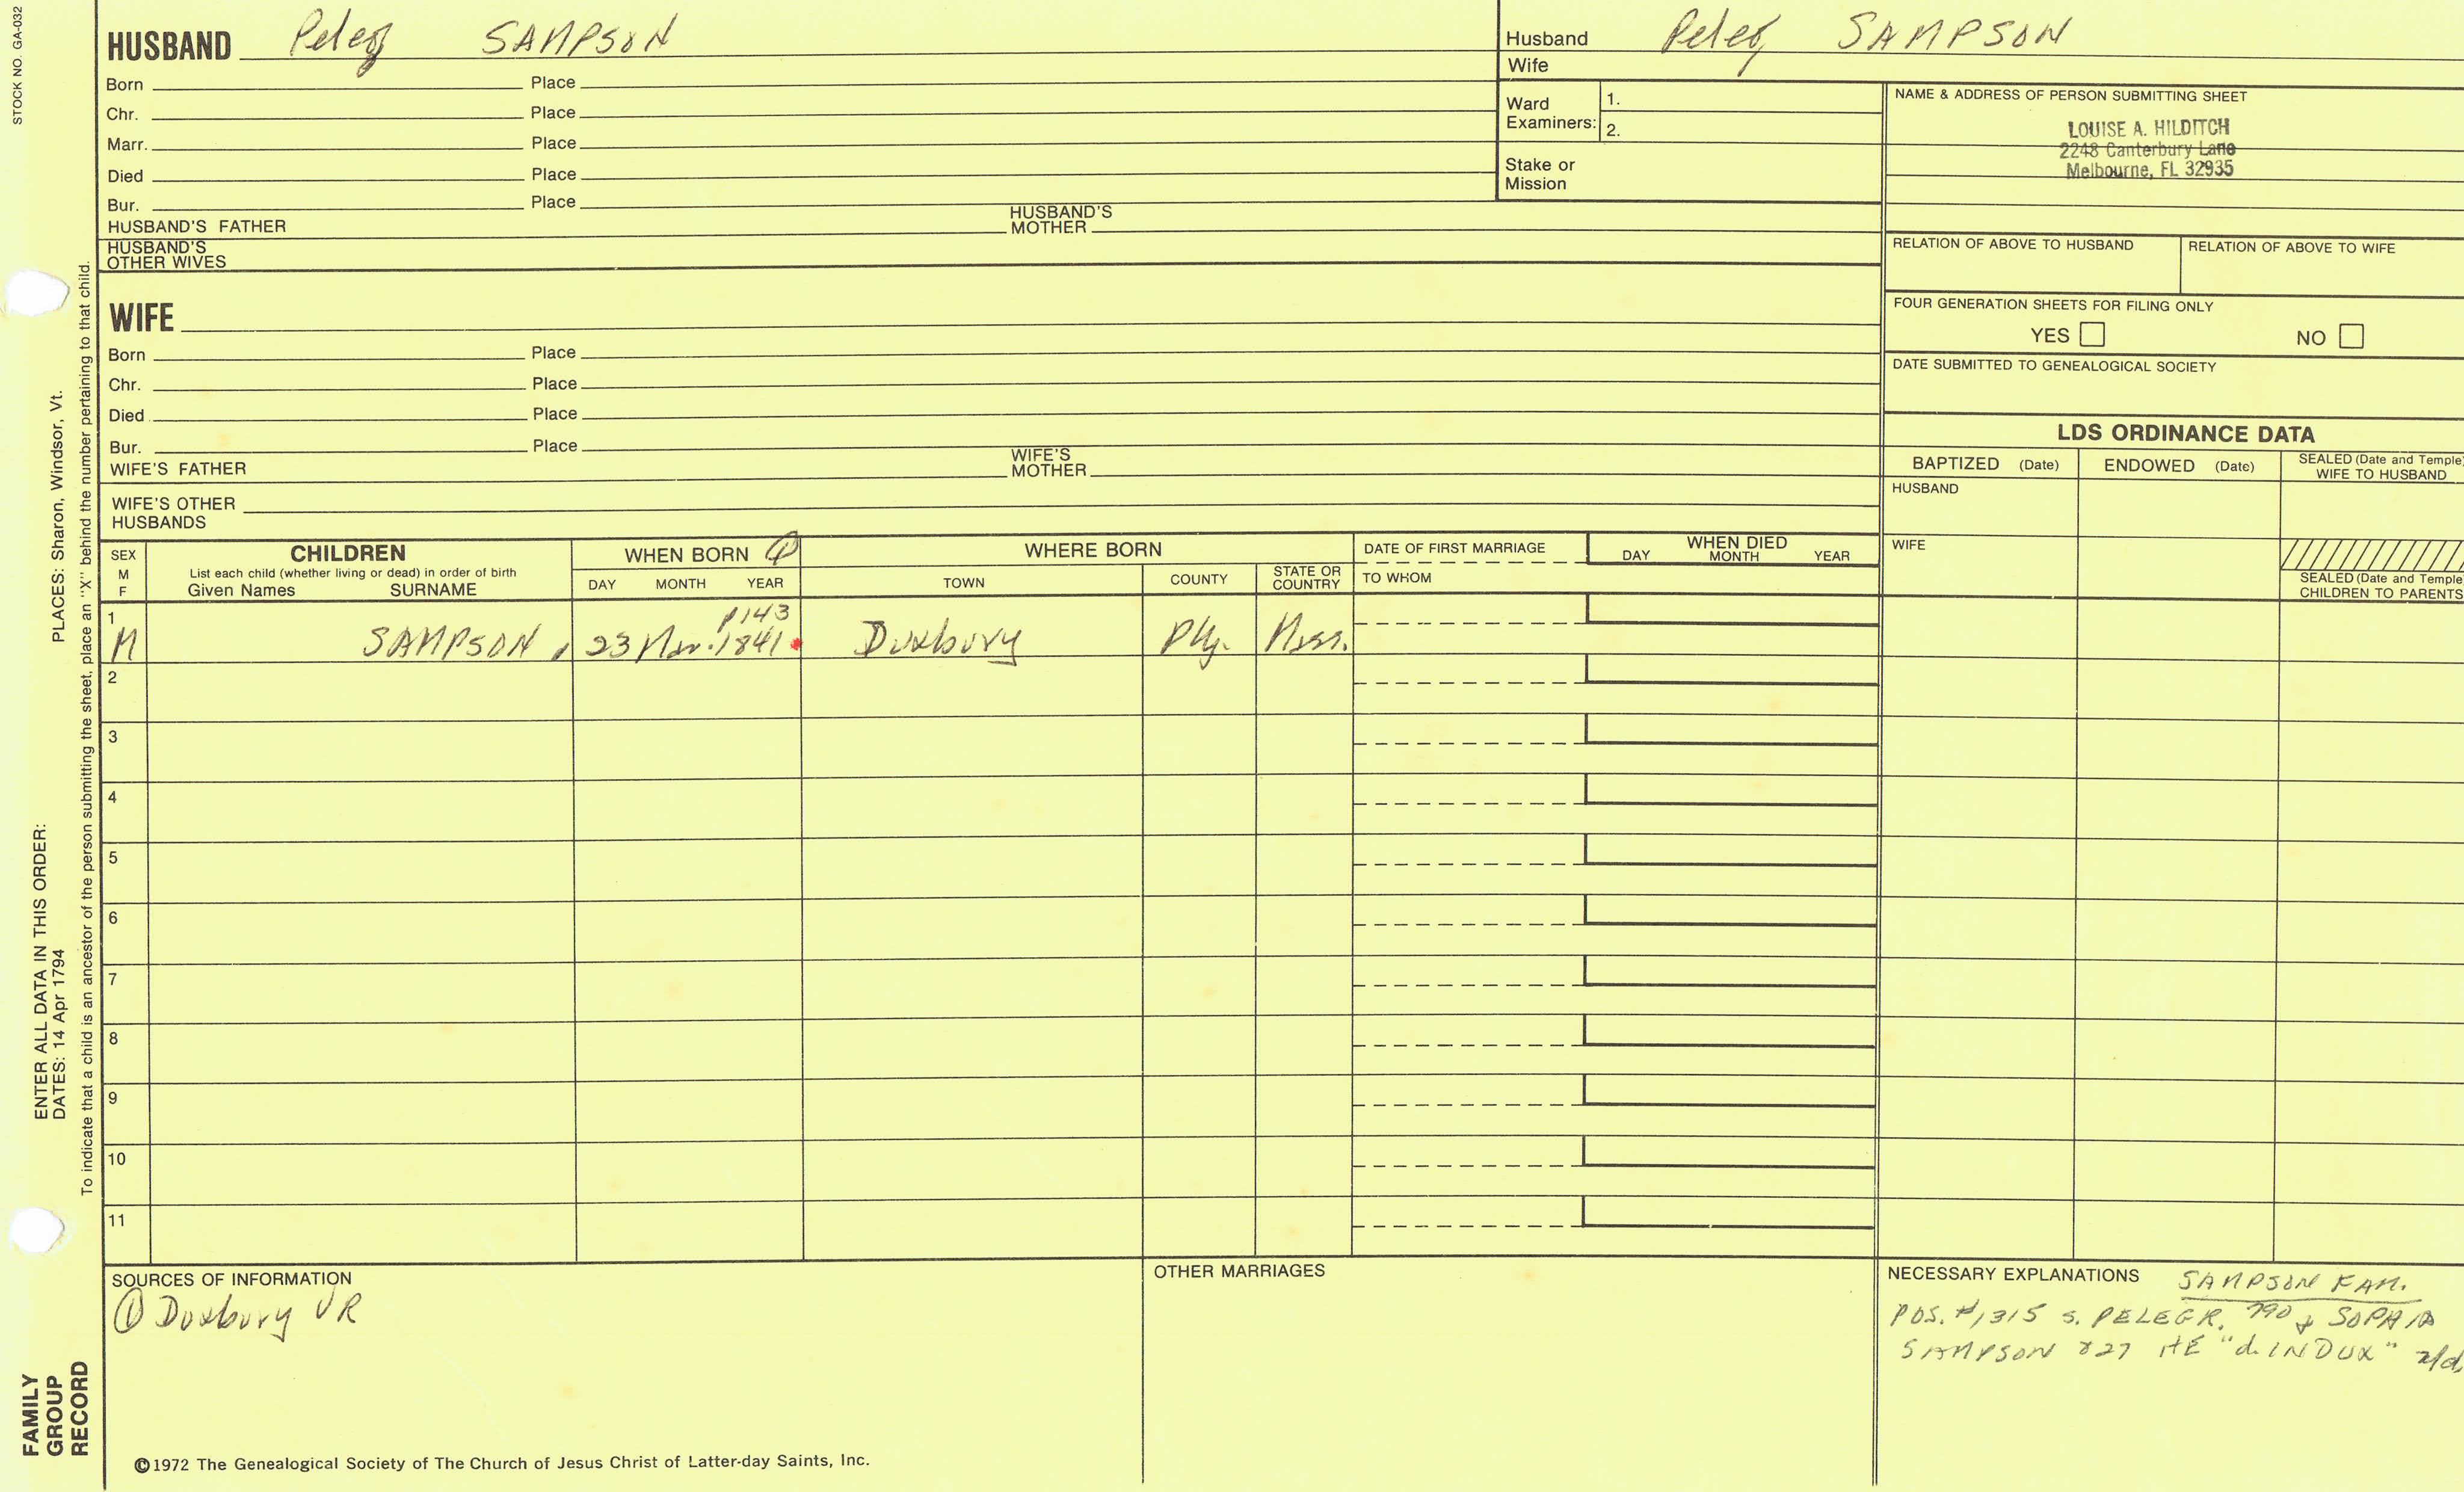 STOCK NO. GA-032
HUSBAND Peleg SAMPSON
Born Place
Chr. Place
Marr. Place
Died Place
Bur. Place
HUSBAND'S FATHER HUSBAND'S MOTHER
HUSBAND'S OTHER WIVES
Husband Peleg SAMPSON
Wife
Ward Examiners: 1.
2.
Stake or Mission
NAME & ADDRESS OF PERSON SUBMITTING SHEET
LOUISE A. HILDITCH
2248 Canterbury Lane
Melbourne, FL 32935
RELATION OF ABOVE TO HUSBAND RELATION OF ABOVE TO WIFE
FOUR GENERATION SHEETS FOR FILING ONLY
YES NO
DATE SUBMITTED TO GENEALOGICAL SOCIETY
WIFE
Born Place
Chr. Place
Died Place
Bur. Place
WIFE'S FATHER WIFE'S MOTHER
WIFE'S OTHER HUSBANDS
LDS ORDINANCE DATA
BAPTIZED (Date) ENDOWED (Date) SEALED (Date and Temple) WIFE TO HUSBAND
HUSBAND
WIFE
SEALED (Date and Temple) CHILDREN TO PARENTS
SEX M F
CHILDREN
List each child (whether living or dead) in order of birth
Given Names SURNAME
WHEN BORN ①
DAY MONTH YEAR
WHERE BORN
TOWN COUNTY STATE OR COUNTRY
DATE OF FIRST MARRIAGE
TO WHOM
WHEN DIED
DAY MONTH YEAR
p143
1 M SAMPSON 23 1841 Duxbury Ply. Mass.
2
3
4
5
6
7
8
9
10
11
SOURCES OF INFORMATION
① Duxbury VR
OTHER MARRIAGES
NECESSARY EXPLANATIONS SAMPSON FAM.
POS. #1315 s. PELEG R. 790 & SOPHIA
SAMPSON 827 HE "d. IN DUX"
©1972 The Genealogical Society of The Church of Jesus Christ of Latter-day Saints, Inc.
PLACES: Sharon, Windsor, Vt.
To indicate that a child is an ancestor of the person submitting the sheet, place an "X" behind the number pertaining to that child.
ENTER ALL DATA IN THIS ORDER:
DATES: 14 Apr 1794
FAMILY
GROUP
RECORD